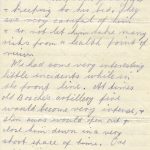 & keeping to his bed, they
are very careful of him
& do not let him take any
risks from a health point of
view.
We had some very interesting
little incidents while in
the front line. At times
old Bosche artillery fire
would become very intense, &
ours would open out &
close him down in a very
short space of time. One